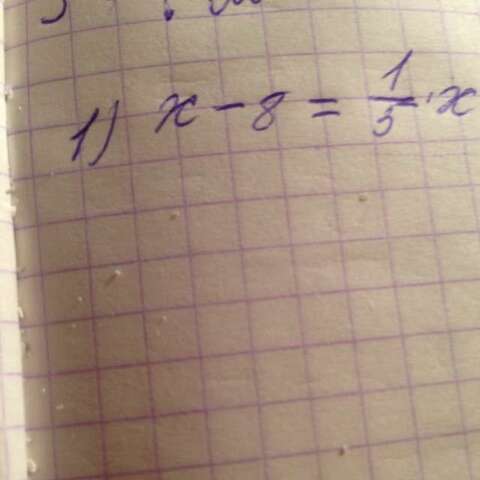 1) x - 8 = 1/5 · x